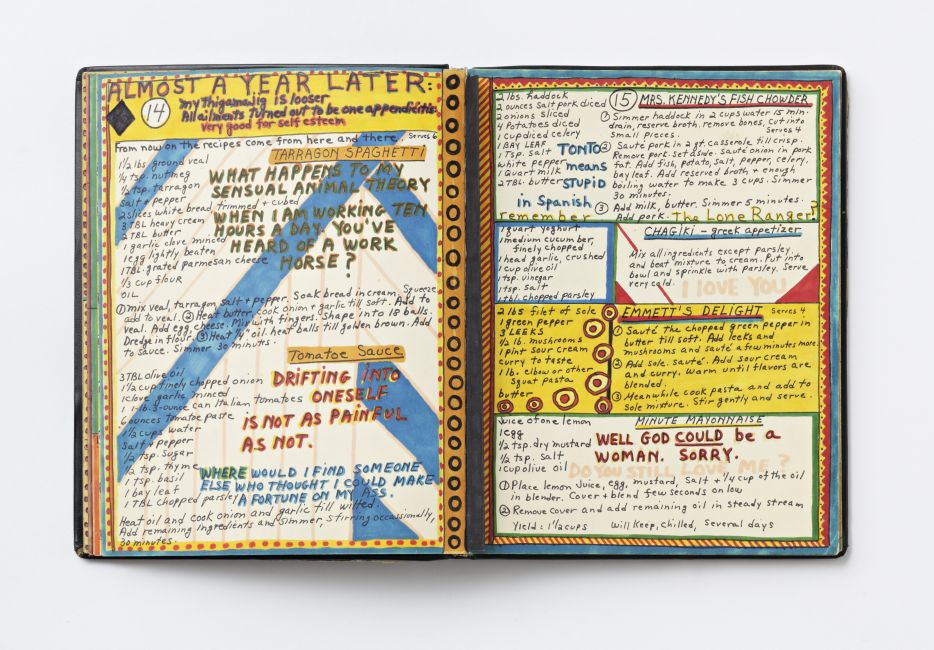 ALMOST A YEAR LATER:
14
my thigamajig is looser
All ailments turned out to be one appendicitis
very good for self esteem
From now on the recipes come from here and there.
Serves 6
TARRAGON SPAGHETTI
1½ lbs ground veal
¼ tsp. nutmeg
½ tsp. tarragon
Salt + pepper
2 slices white bread trimmed + cubed
3 TBL heavy cream
2 TBL butter
1 garlic clove minced
1 egg lightly beaten
1 TBL. grated parmesan cheese
⅓ cup flour
OIL
WHAT HAPPENS TO MY
SENSUAL ANIMAL THEORY
WHEN I AM WORKING TEN
HOURS A DAY. YOU'VE
HEARD OF A WORK
HORSE?
① Mix veal, tarragon, salt + pepper. Soak bread in cream. Squeeze
add to veal. ② Heat butter. Cook onion + garlic till soft. Add to
veal. Add egg, cheese. Mix with fingers. Shape into 18 balls.
Dredge in flour. ③ Heat ¼" oil. heat balls till golden brown. Add
to sauce. Simmer 30 minutes.
Tomatoe Sauce
3 TBL olive oil
1/2 cup finely chopped onion
1 clove garlic minced
1 1-lb-3-ounce can Italian tomatoes
6 ounces tomatoe paste
½ cups water
Salt + pepper
½ tsp. sugar
½ tsp. thyme
1 tsp. basil
1 bay leaf
1 TBL chopped parsley
DRIFTING INTO
ONESELF
IS NOT AS PAINFUL
AS NOT.
WHERE WOULD I FIND SOMEONE
ELSE WHO THOUGHT I COULD MAKE
A FORTUNE ON MY ASS.
Heat oil and cook onion and garlic till wilted.
Add remaining ingredients and simmer, stirring occassionally,
30 minutes.
15
MRS. KENNEDY'S FISH CHOWDER
2 lbs. haddock
2 ounces salt pork diced
2 onions sliced
4 Potatoes diced
1 cup diced celery
1 BAY LEAF
1 Tsp. Salt
white pepper
1 Quart milk
2 TBL. butter
TONTO
means
STUPID
in Spanish
remember
The Lone Ranger?
① Simmer haddock in 2 cups water 15 min.
drain, reserve broth, remove bones, cut into
small pieces.
Serves 4
② Saute pork in 2 qt casserole till crisp.
Remove pork. Set aside. Sauté onion in pork
fat. Add fish, potato, salt, pepper, celery,
bay leaf. Add reserved broth + enough
boiling water to make 3 cups. Simmer
30 minutes.
③ Add milk, butter. Simmer 5 minutes.
Add pork.
CHAGIKI - greek appetizer
1 quart yoghurt
1 medium cucumber,
finely chopped
1 head garlic, crushed
1 cup olive oil
1 tsp. vinegar
1 tsp. salt
1 tbl. chopped parsley
Mix all ingredients except parsley
and beat mixture to cream. Put into
bowl and sprinkle with parsley. Serve
very cold.
I LOVE YOU
EMMETT'S DELIGHT
Serves 4
2 lbs filet of sole
1 green pepper
3 LEEKS
½ lb. mushrooms
1 pint sour cream
curry to taste
1 lb. elbow or other
squat pasta
butter
① Sauté the chopped green pepper in
butter till soft. Add leeks and
mushrooms and sauté a few minutes more.
② Add sole. sauté. Add sour cream
and curry. Warm until flavors are
blended.
③ Meanwhile cook pasta and add to
sole mixture. Stir gently and serve.
MINUTE MAYONNAISE
Juice of one lemon
1 egg
½ tsp. dry mustard
½ tsp. salt
1 cup olive oil
WELL GOD COULD be a
WOMAN. SORRY.
DO YOU STILL LOVE ME?
① Place lemon juice, egg, mustard, salt + ¼ cup of the oil
in blender. Cover + blend few seconds on low
② Remove cover and add remaining oil in steady stream
Yield: 1¼ cups
Will keep, chilled, several days